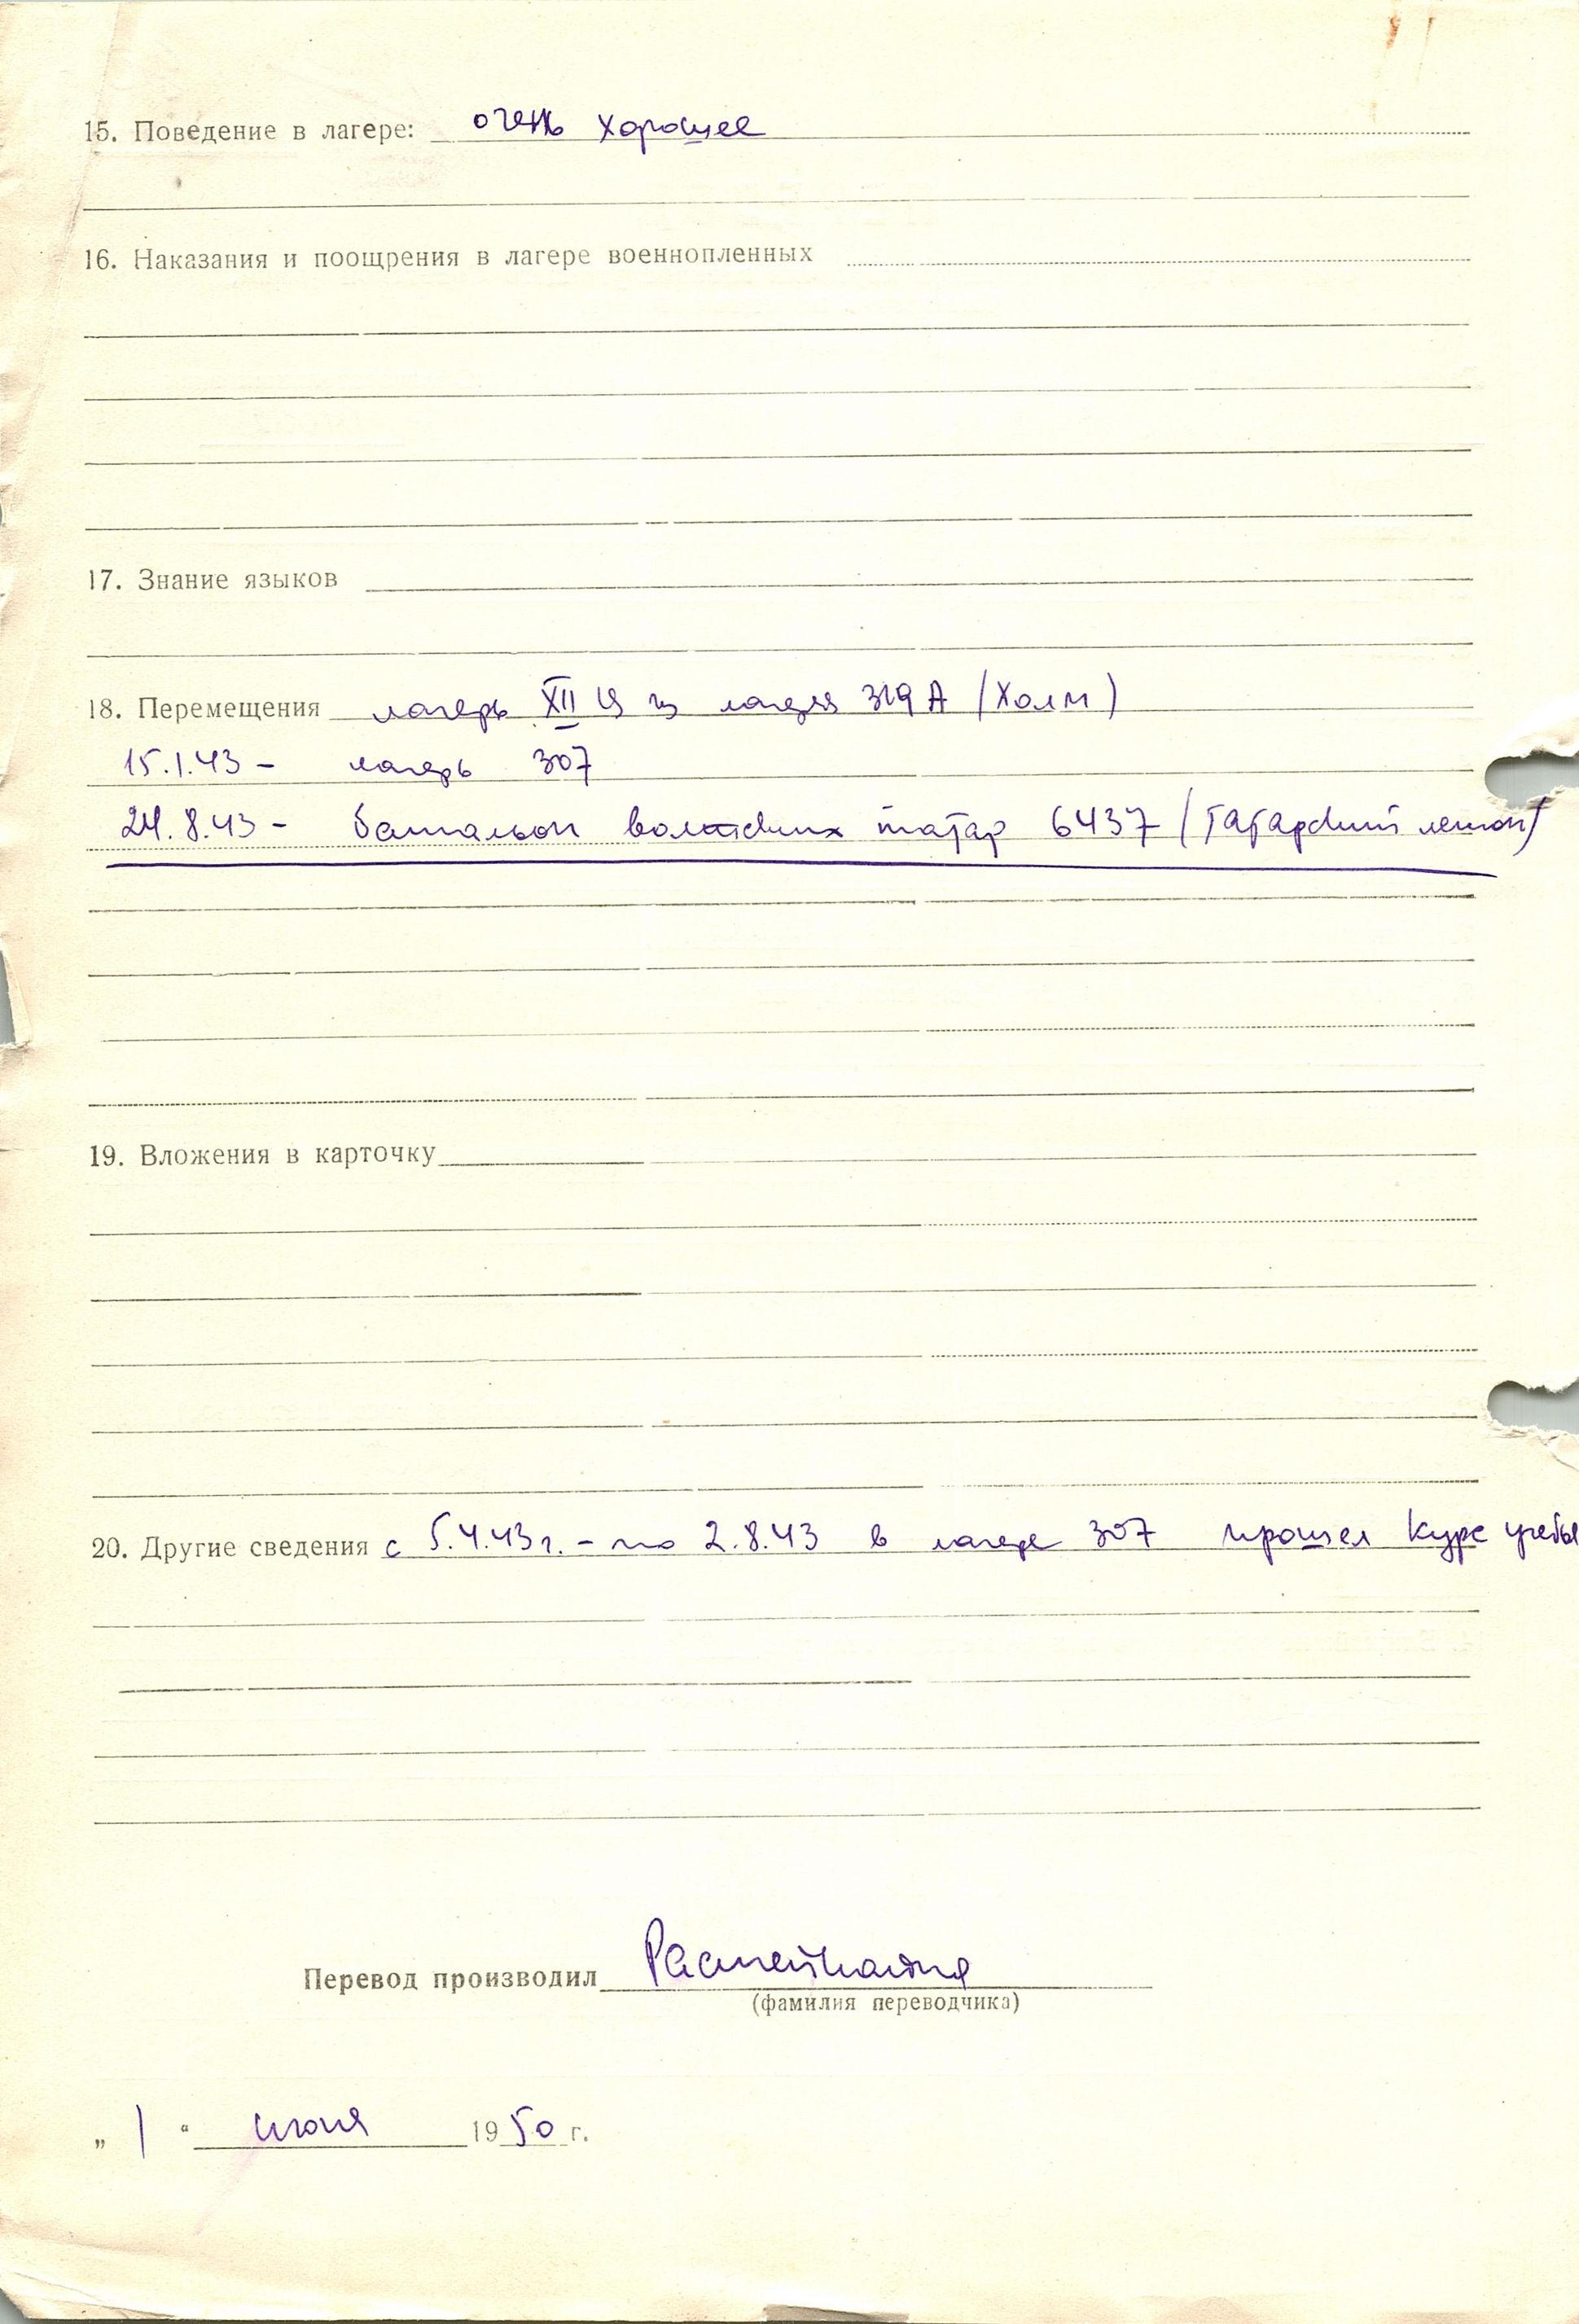 15. Поведение в лагере: очень хорошее
16. Наказания и поощрения в лагере военнопленных
17. Знание языков
18. Перемещения лагерь XII из лагеря 319 А (Холм)
15.1.43 - лагерь 307
24.8.43 - батальон волжских татар 6437 (Татарский легион)
19. Вложения в карточку
20. Другие сведения с 5.4.43 г. - по 2.8.43 в лагере 307 прошел курс учебы
Перевод производил
(фамилия переводчика)
„ 1 “ июня 1950 г.